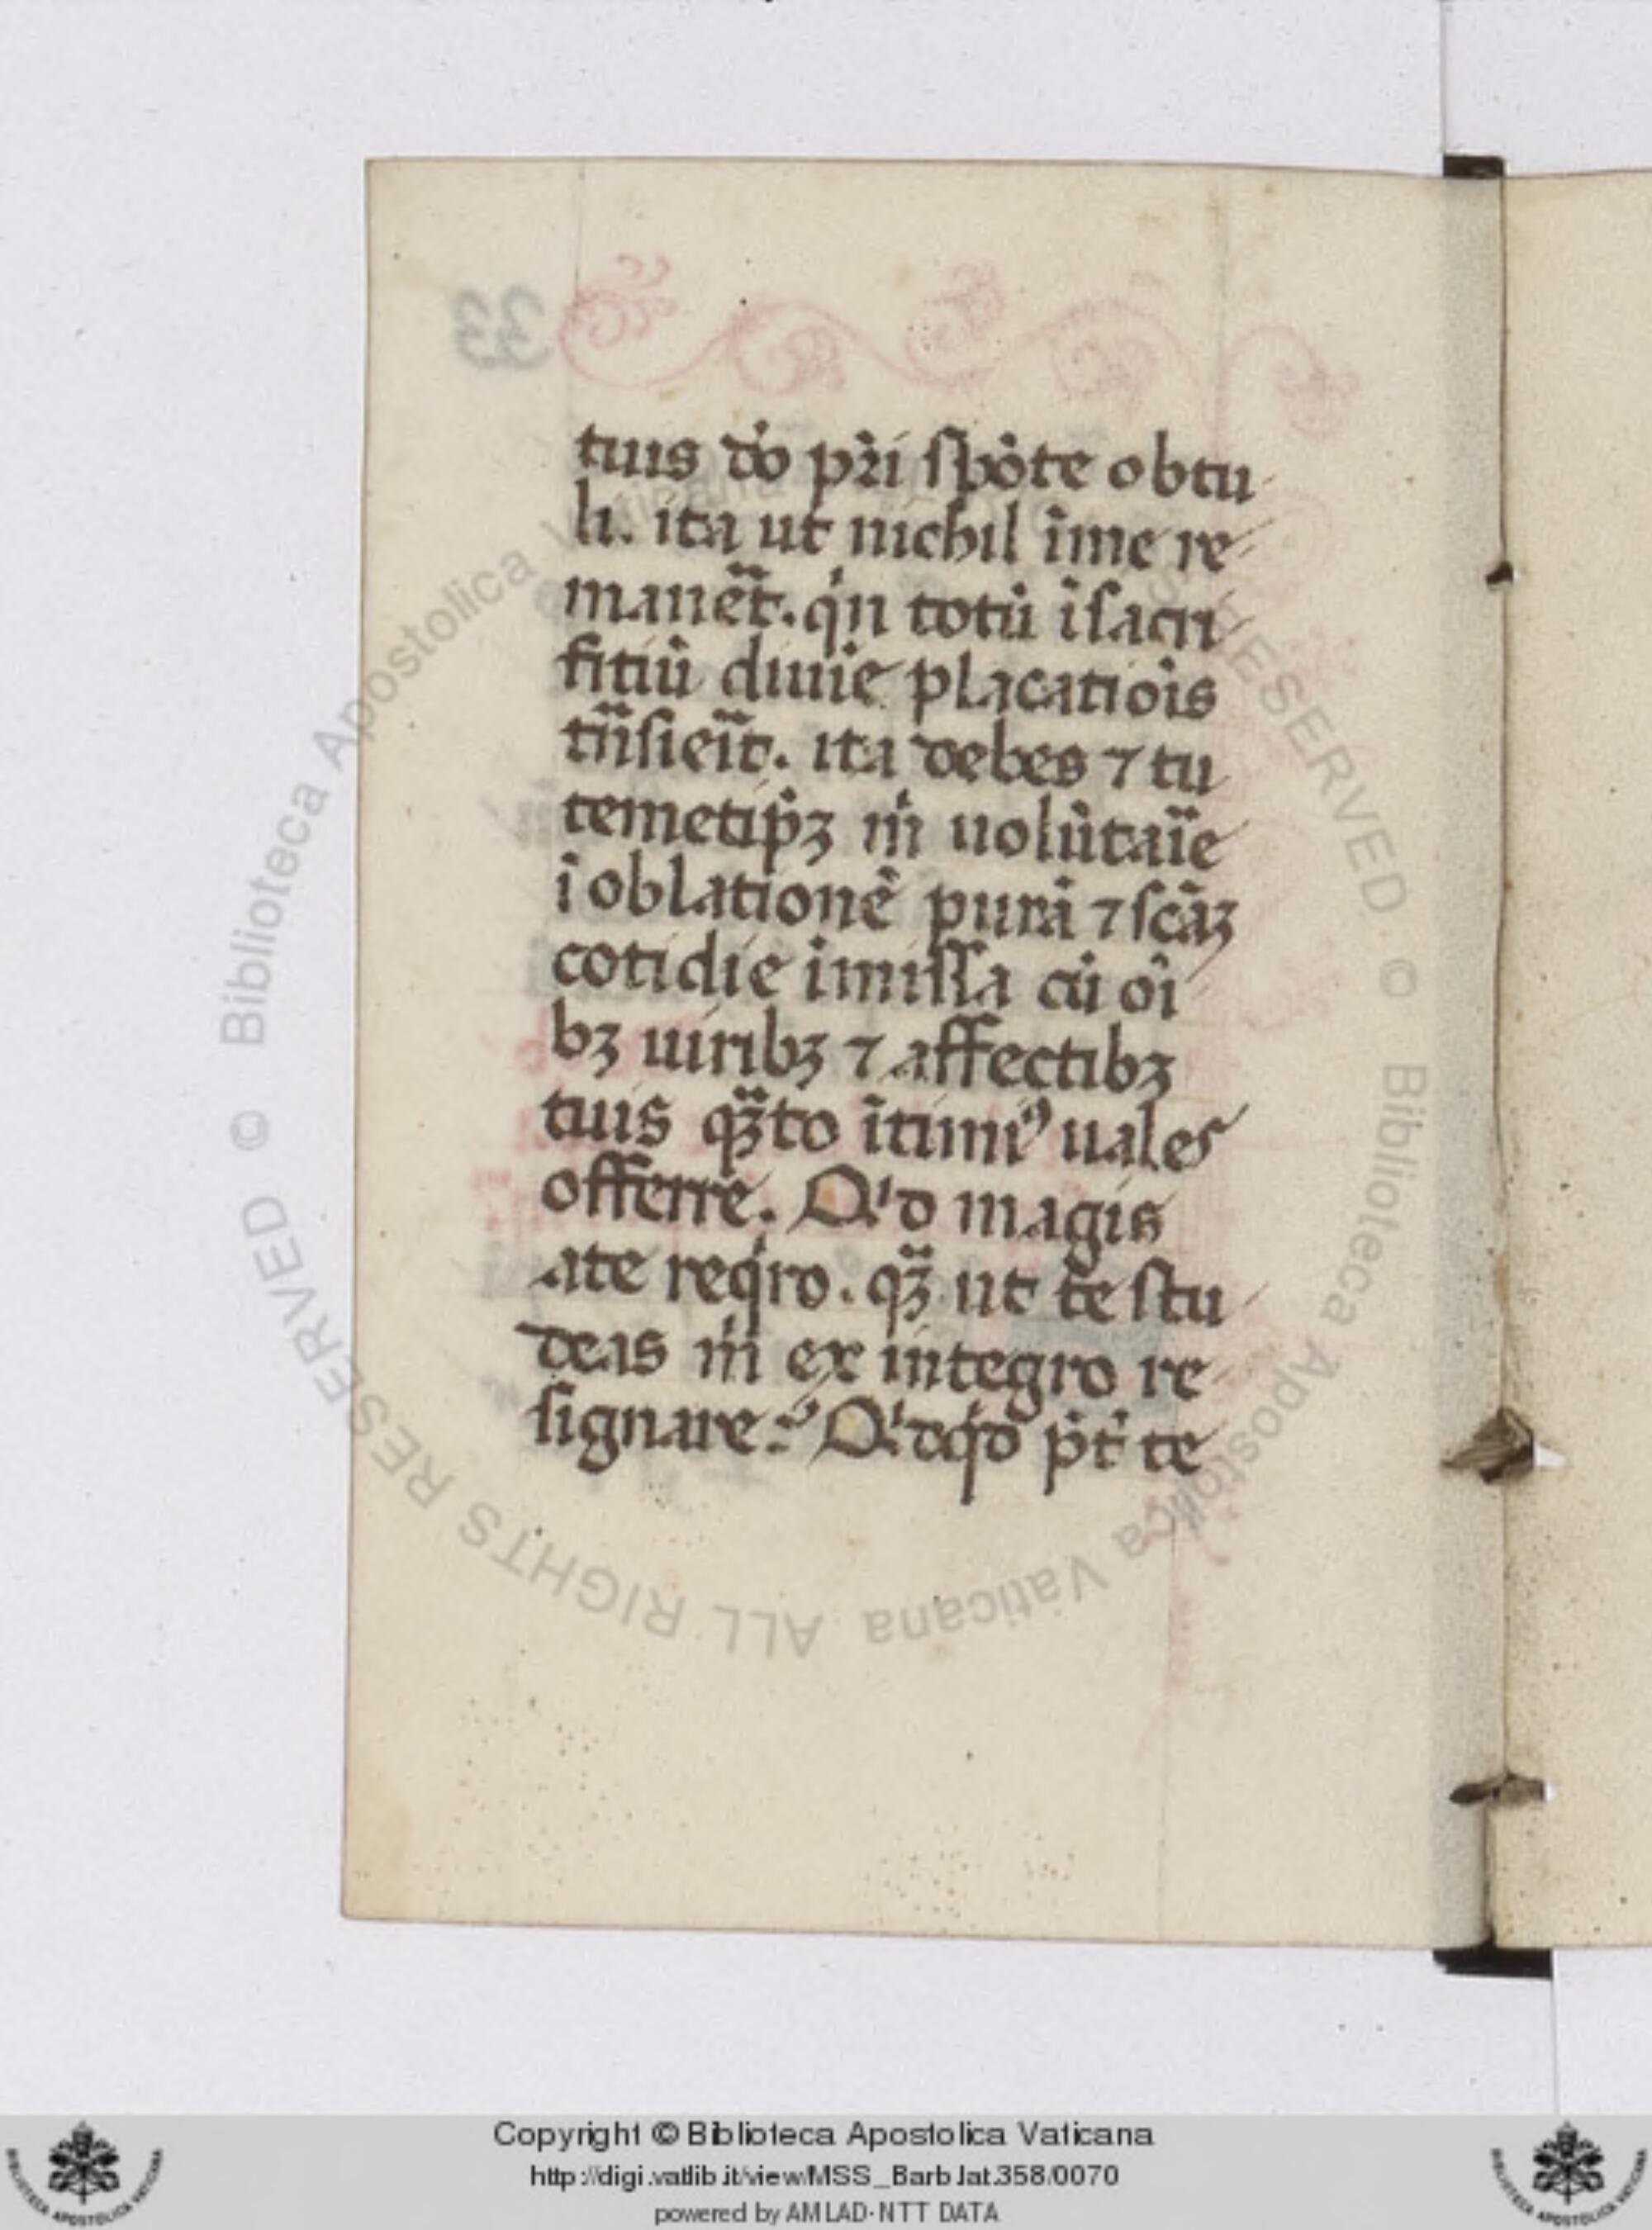 tuus đo pr̃i spōte obtu
li. ita ut nichil īme re
manēt. qin totū ī sacri
fitiū diuīe placatiōis
trāsiēt. ita debes ⁊ tu
temetip̄ꝫ m̄ uolūtarīe
ī oblationē purā ⁊ scāꝫ
cotidie ī missa cū oī
bꝫ uiribꝫ ⁊ affectibꝫ
tuis qꝫto ītimiꝰ uales
offerre. Qid magis
a te reqro. qꝫ ut te stu
deas m̄ ex integro re
signare. Qid qd p̄t te
33
© Biblioteca Apostolica Vaticana ALL RIGHTS RESERVED
© Biblioteca Apostolica Vaticana ALL RIGHTS RESERVED
Copyright © Biblioteca Apostolica Vaticana
http://digi.vatlib.it/view/MSS_Barb.lat.358/0070
powered by AMLAD-NTT DATA
BIBLIOTECA APOSTOLICA VATICANA
BIBLIOTECA APOSTOLICA VATICANA